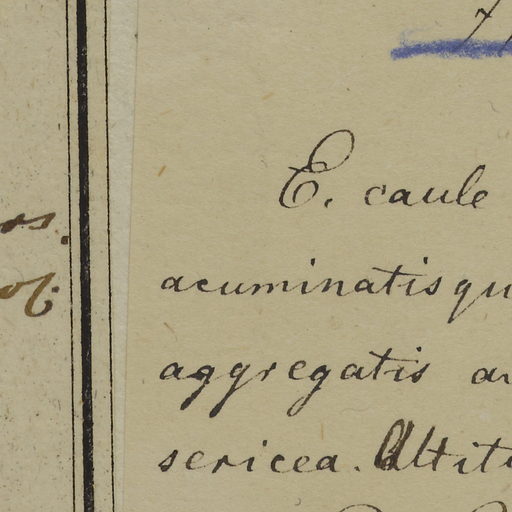 E. caule
acuminatisqu
aggregatis a
sericea. Altit